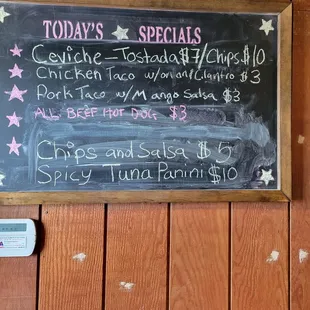 TODAY'S SPECIALS
Ceviche - Tostada $7/Chips $10
Chicken Taco w/onion/Cilantro $3
Pork Taco w/Mango Salsa $3
ALL BEEF HOT DOG $3
Chips and Salsa $5
Spicy Tuna Panini $10